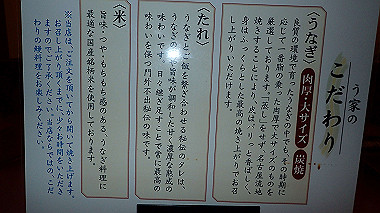 う家の
こだわり
〈うなぎ〉 肉厚・大サイズ 炭焼
良質の環境で育ったうなぎの中でも、その時期に
応じて一番脂の乗った肉厚で大サイズのものを
厳選しております。「蒸し」をせず、名古屋流地
焼きすることにより、皮はぱりっと香ばしく、
身はふっくらとした最高の焼き上がりでお召
し上がりいただけます。
〈たれ〉
うなぎとご飯を繋ぎ合わせる秘伝のタレは、
うなぎの脂と旨味が調和した甘く濃厚な熟成の
味わいです。日々継ぎ足すことで常に最高の
味わいを保つ門外不出秘伝の味です。
〈米〉
旨味・つや・もちもち感のある、うなぎ料理に
最適な国産銘柄米を使用しております。
※当店は、ご注文を頂いてから開いて焼き上げます。
お召し上がり頂くまでに、少々お時間をいただき
ますのでご了承ください。当店ならではの、こだ
わりの鰻料理をお楽しみください。